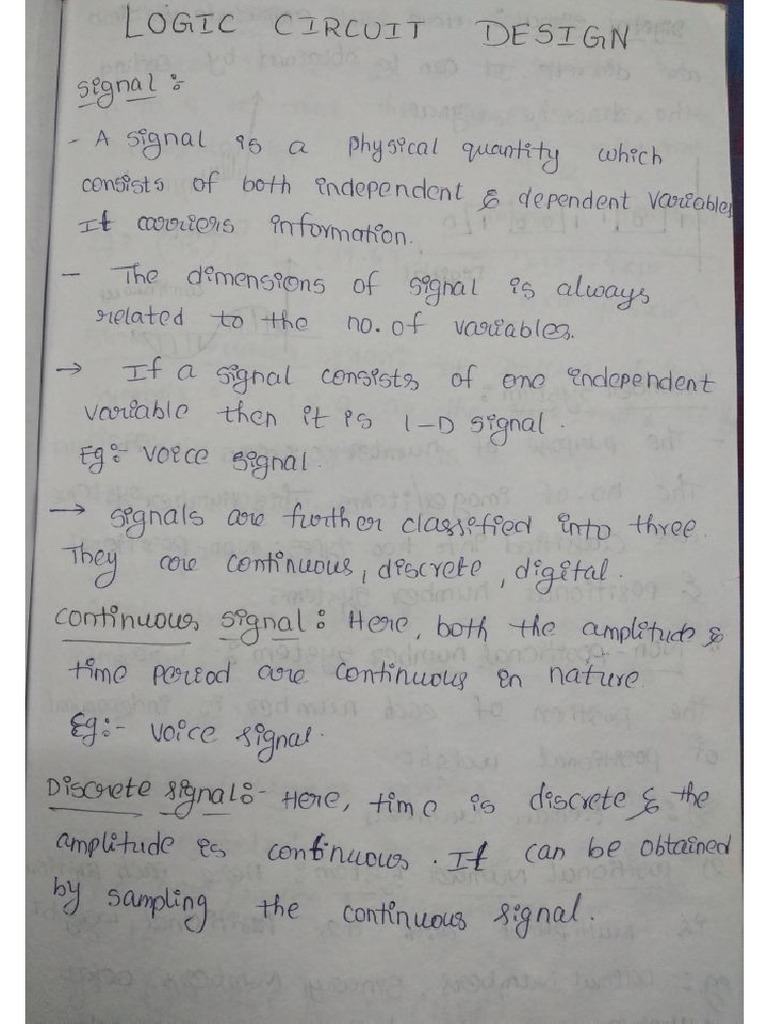 LOGIC CIRCUIT DESIGN
Signal :-
- A signal is a physical quantity which
consists of both independent & dependent variables
It carriers information.
- The dimensions of signal is always
related to the no. of variables.
→ If a signal consists of one independent
variable then it is 1-D signal.
Eg:- voice signal.
→ signals are further classified into three.
They are continuous, discrete, digital.
continuous signal : Here, both the amplitude &
time period are continuous in nature.
Eg:- voice signal.
Discrete signal:- Here, time is discrete & the
amplitude is continuous. It can be obtained
by sampling the continuous signal.